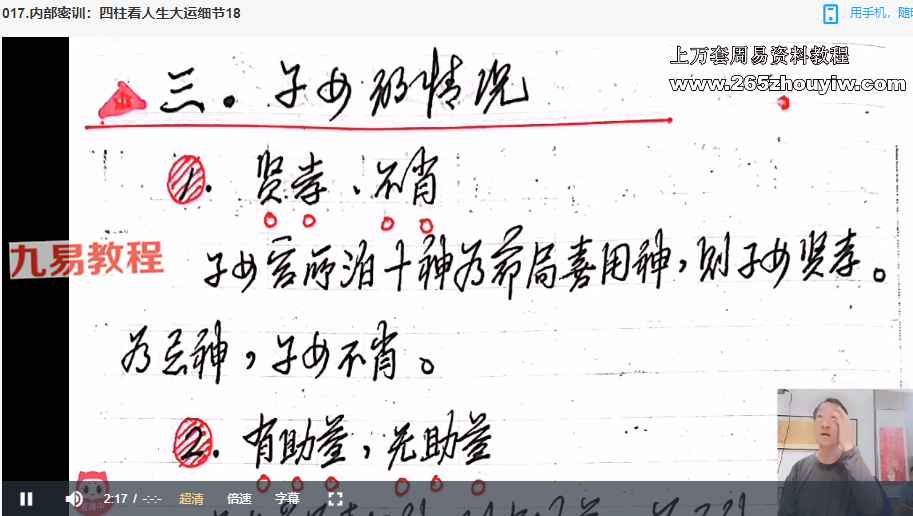 017.内部密训：四柱看人生大运细节18
用手机，随
上万套周易资料教程
www.265zhouyiw.com
三。子女的情况
1. 贤孝、不肖
九易教程
子女宫所泊十神为命局喜用神，则子女贤孝。
为忌神，子女不肖。
2. 有助益，无助益
2:17 / -:-:- 超清 倍速 字幕